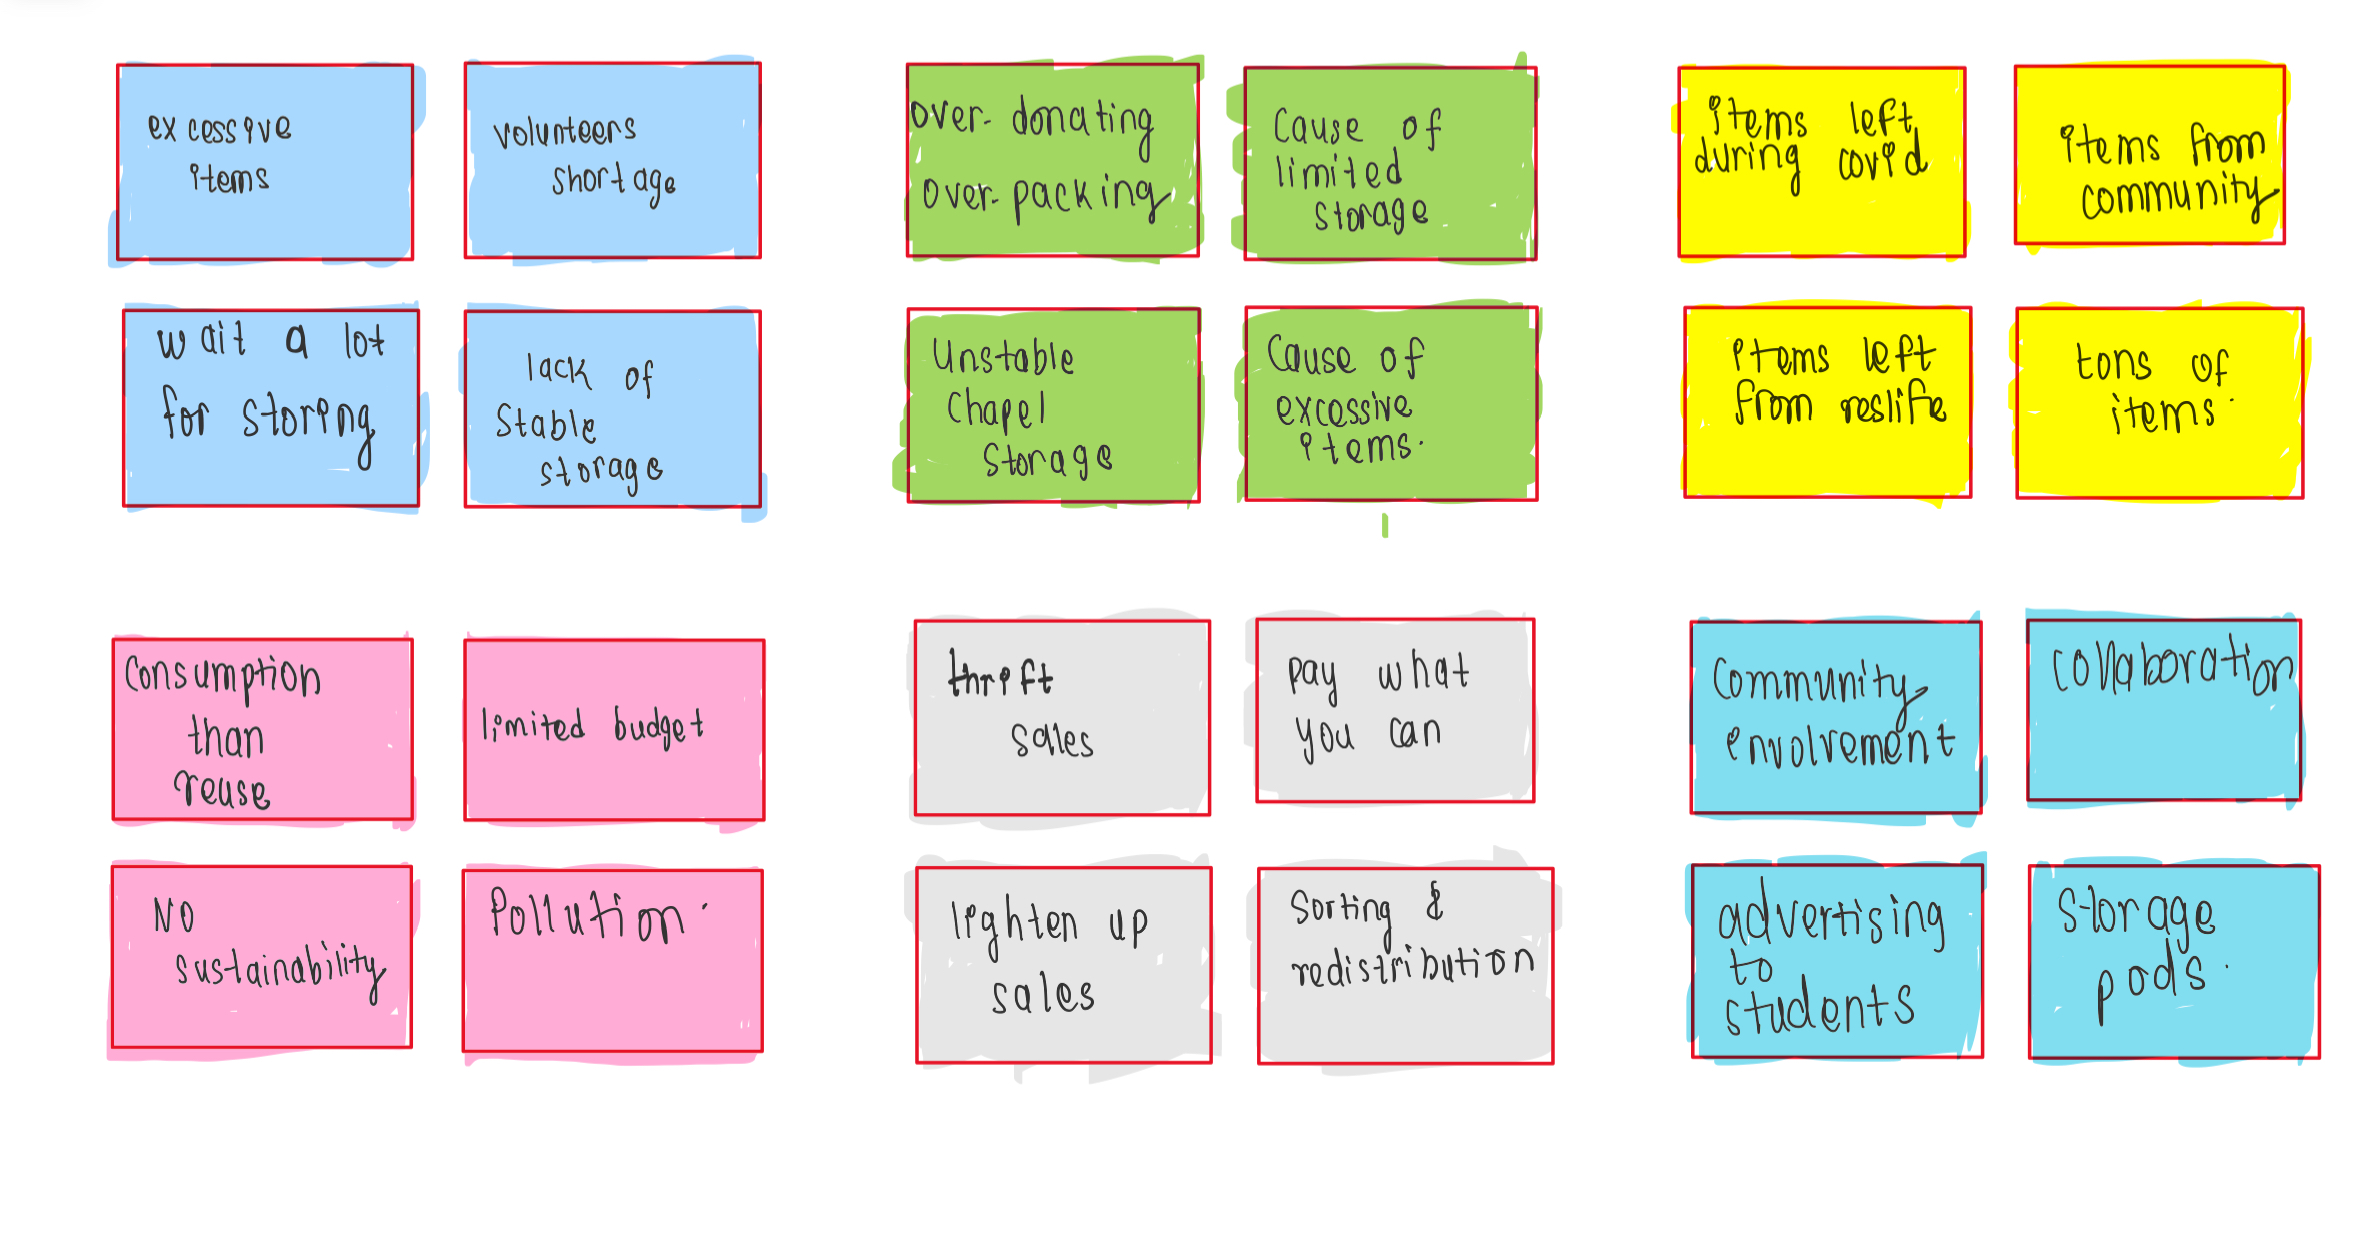 excessive
items
volunteers
shortage
over-donating
over-packing
Cause of
limited
storage
items left
during covid
items from
community
wait a lot
for storing
lack of
Stable
storage
Unstable
Chapel
Storage
Cause of
excessive
items.
items left
from reslife
tons of
items.
Consumption
than
reuse
limited budget
thrift
sales
pay what
you can
Community
envolvement
collaboration
NO
sustainability
Pollution.
lighten up
sales
Sorting &
redistribution
advertising
to
students
Storage
pods.